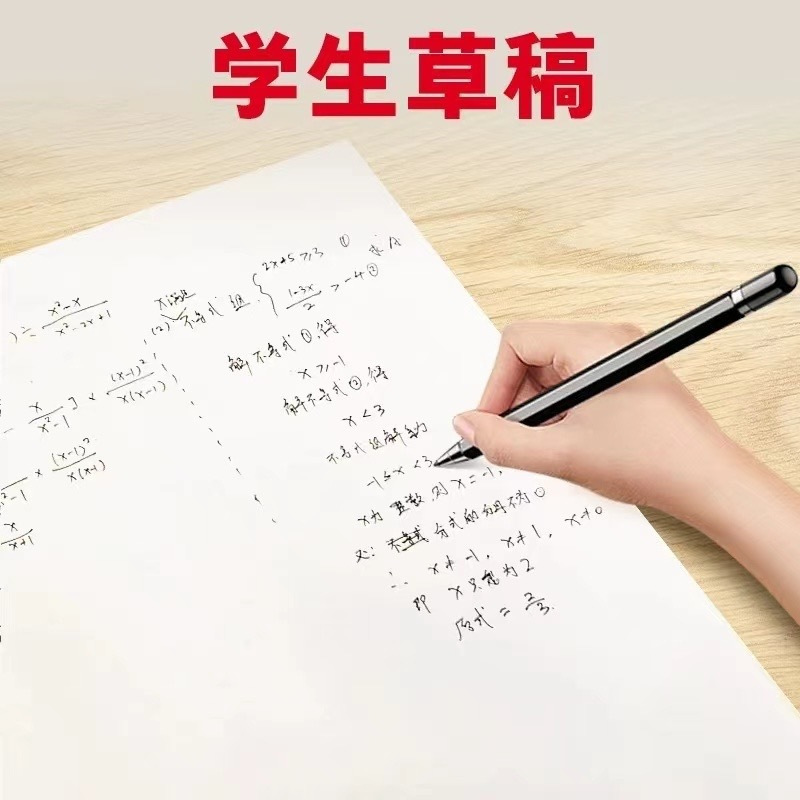 学生草稿
) ÷ (x²-x)/(x²-2x+1)
- x/(x²-1) ] × (x-1)²/(x(x-1))
x²-1 × (x-1)²/(x(x-1))
x/(x+1)
x满足
(2) 不等式组 { 2x+5≥3 ①
(1-3x)/2 > -4 ②
解不等式①,得
x≥-1
解不等式②,得
x<3
不等式组解为
-1≤x<3
x为整数 则 x=-1,
又: 分式的分母不为0
∴ x≠-1, x≠1, x≠0
即 x只能为2
原式=2/3.